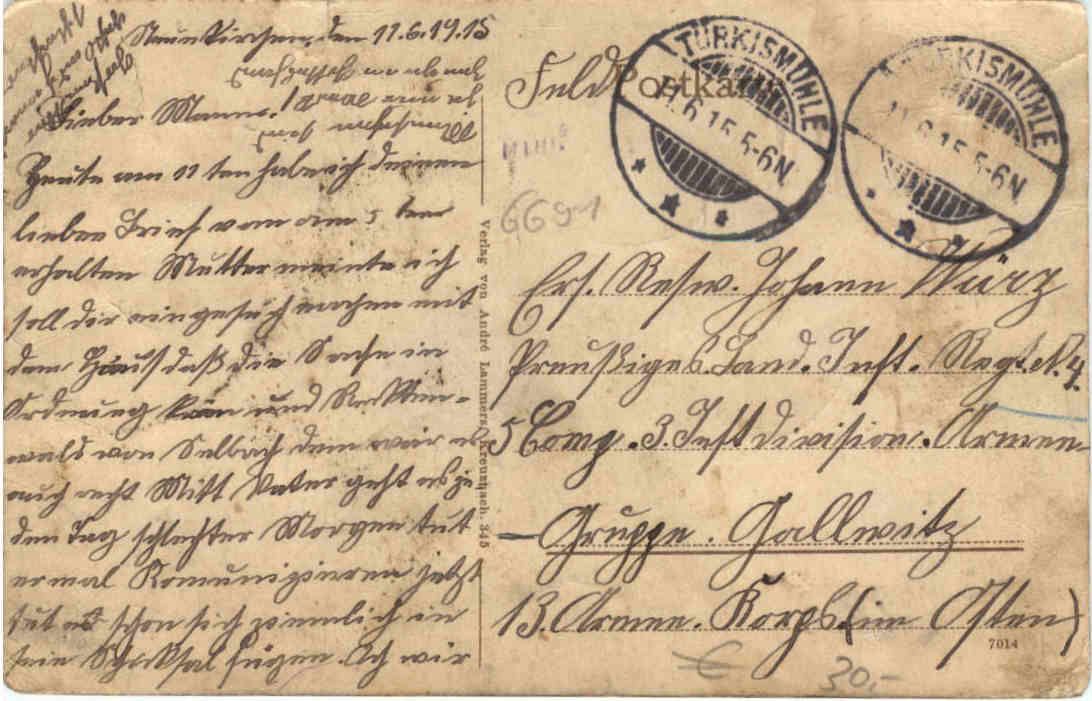 Neunkirchen, den 11.6.1915
Lieber Mann.
Heute am 11 ten habe ich deinen
lieben Brief vom am 5 ten
erhalten Mutter meinte ich
soll dir ein gesuch machen mit
dem Haus daß die Sache in
Ordnung käm und Reckten-
wald von Selbach dem wär es
auch recht Mitt Vater geht es je
den Tag schlechter Morgen tut
er mal Komunizieren jetzt
tut es schon sich ziemlich in
sein Schicksal fügen. Ach wir
Verlag von André Lammers, Kreuznach. 345
Feldpostkarte
TÜRKISMÜHLE
11.6.15.5-6N
TÜRKISMÜHLE
11.6.15.5-6N
669
Ers. Resw. Johann Würz
Preußiges Land. Inft. Regt. N. 4.
5 Comp. 3. Inft division. Armee
Gruppe. Gallwitz
13. Armee. Korps. (im Osten)
7014
€ 30,-